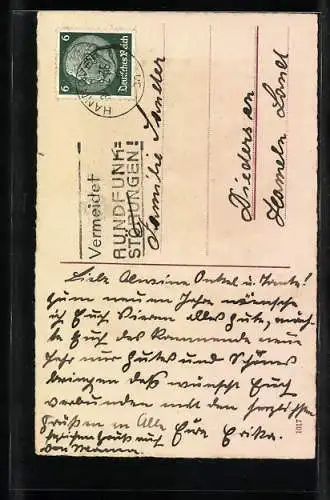 6 Deutsches Reich 6
HAN
Vermeidet
RUNDFUNK=
STÖRUNGEN!
Familie Sander
Diedersen
Hameln Land
Liebe Onkel u. Tante!
Zum neuen Jahre wünsche
ich Euch Vieren alles Gute, möch-
te Euch das kommende neue
Jahr nur Gutes und Schönes
bringen das wünscht Euch
verbunden mit den herzlichsten
Grüßen an Alle Eure Erika.
von Mama.
1017